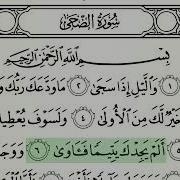 سُورَةُ الضُّحَىٰ
بِسْمِ اللَّهِ الرَّحْمَٰنِ الرَّحِيمِ
١ وَٱلَّيْلِ إِذَا سَجَىٰ ٢ مَا وَدَّعَكَ رَبُّكَ
خَيْرٌ لَّكَ مِنَ ٱلْأُولَىٰ ٤ وَلَسَوْفَ
٥ أَلَمْ يَجِدْكَ يَتِيمًا فَـَٔاوَىٰ ٦